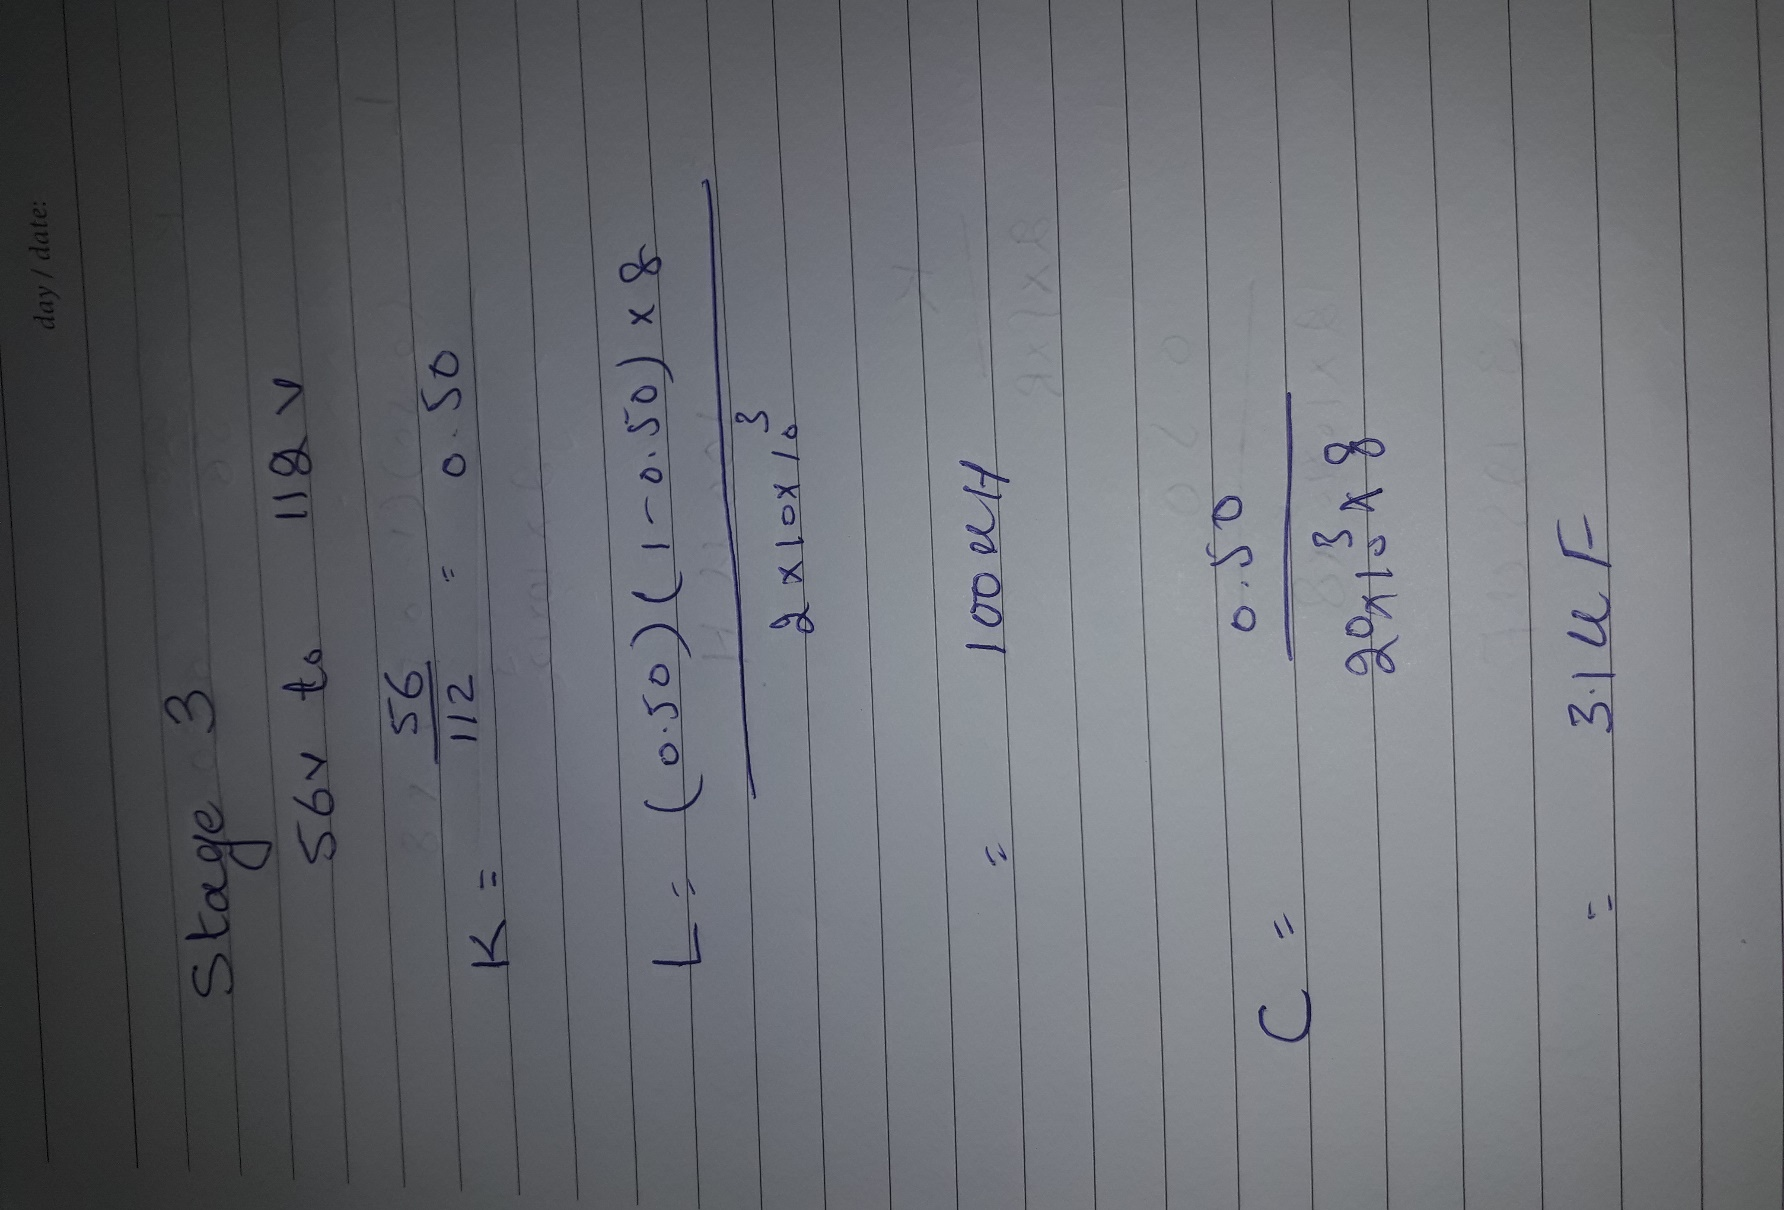 day / date:
Stage 3
56v to 118 v
K = 56/112 = 0.50
L = (0.50)(1-0.50) x 8
2 x 10 x 10³
= 100 uH
C = 0.50
20 x 10³ x 8
= 3.1 uF